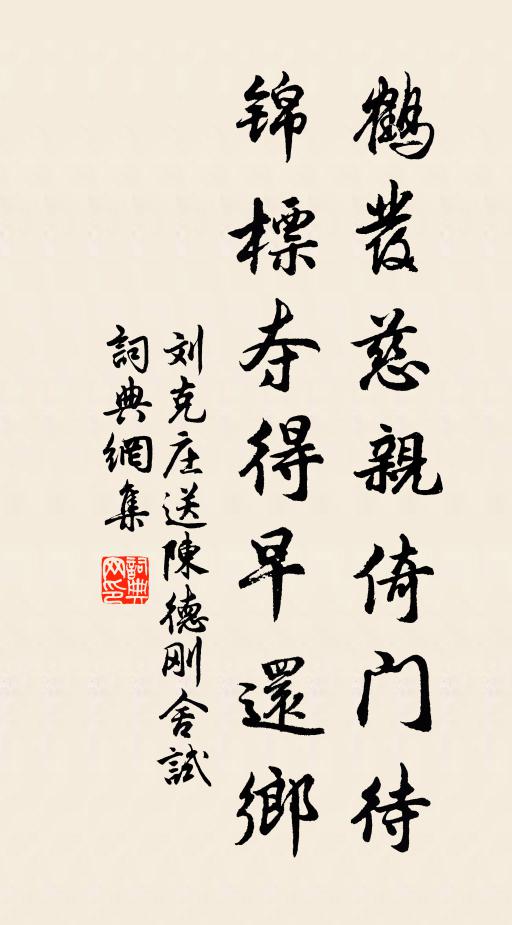 鹤发慈親倚门待
锦標夺得早還鄉
刘克庄送陳德刚舍試
詞典網集
詞典网印